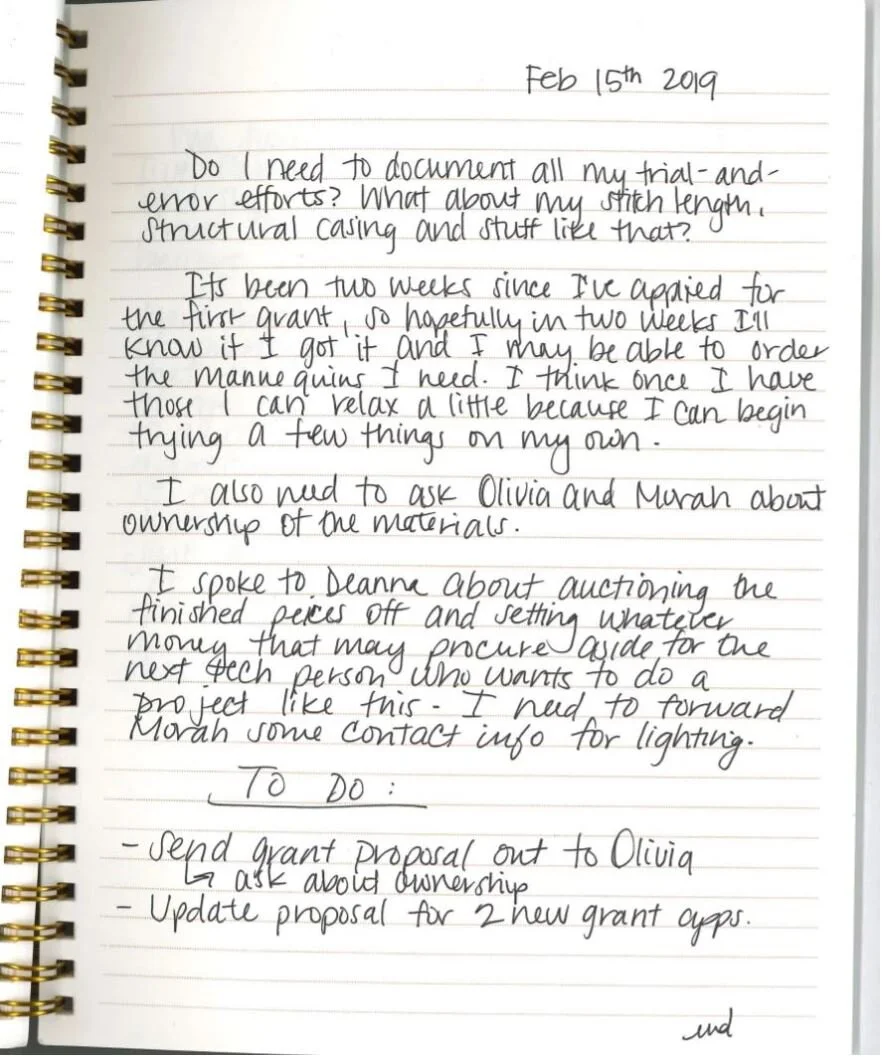 Feb 15th 2019
Do I need to document all my trial-and-
error efforts? What about my stitch length,
structural casing and stuff like that?
Its been two weeks since I've appried for
the first grant, so hopefully in two weeks I'll
know if I got it and I may be able to order
the mannequins I need. I think once I have
those I can relax a little because I can begin
trying a few things on my own.
I also need to ask Olivia and Morah about
ownership of the materials.
I spoke to Deanna about auctioning the
finished peices off and setting whatever
money that may procure aside for the
next tech person who wants to do a
project like this - I need to forward
Morah some contact info for lighting.
TO DO :
- Send grant proposal out to Olivia
↳ ask about ownership
- Update proposal for 2 new grant apps.